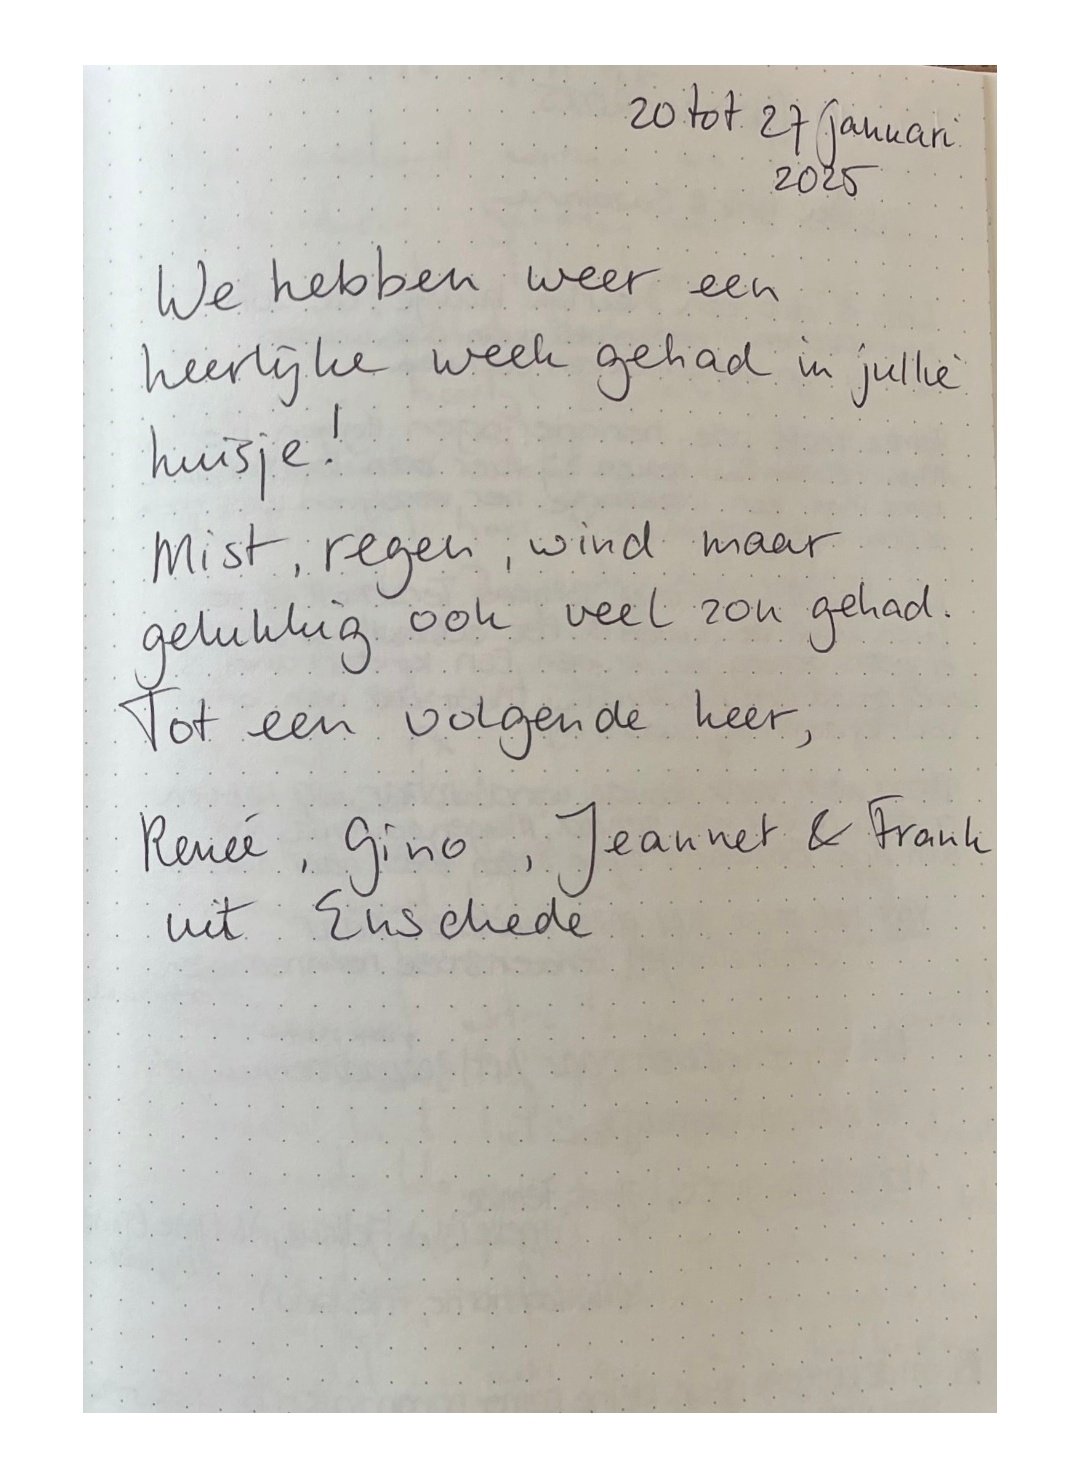 20 tot 27 januari
2025
We hebben weer een
heerlijke week gehad in jullie
huisje!
Mist, regen, wind maar
gelukkig ook veel zon gehad.
Tot een volgende keer,
Reneé, Gino, Jeannet & Frank
uit Enschede